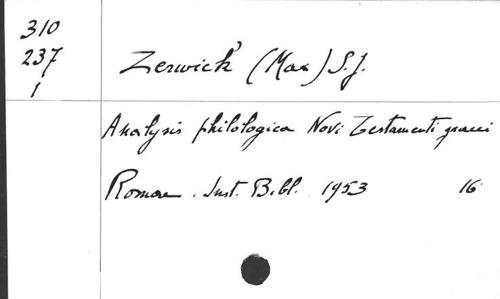 310
237
1
Zerwick (Max) S.J.
Analysis philologica Novi Testamenti graeci
Romae. Inst. Bibl. 1953 16